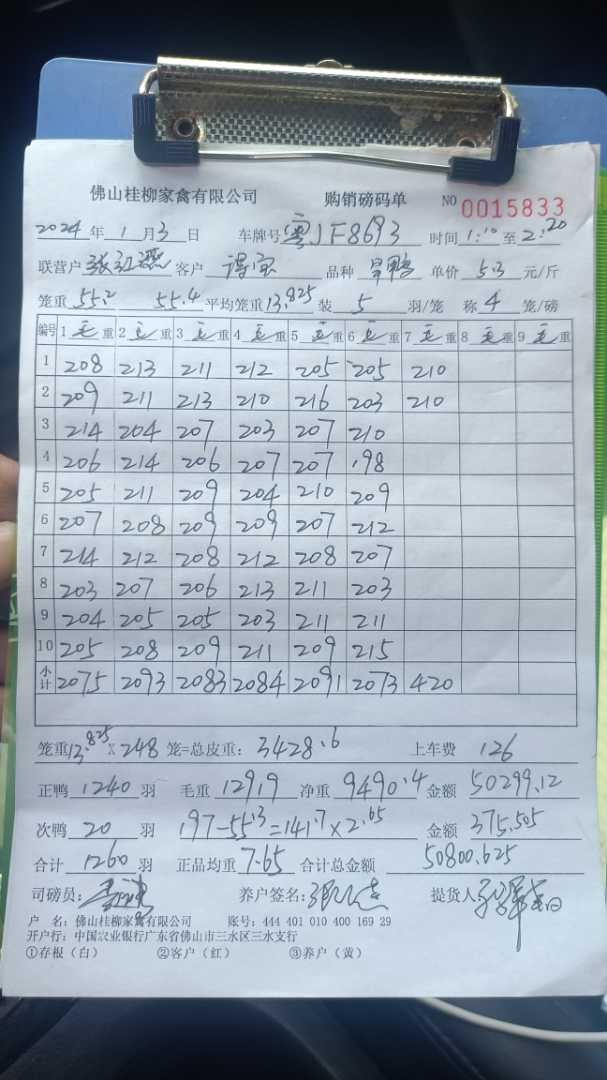 佛山桂柳家禽有限公司 购销磅码单 NO 0015833
2024年 1月3日 车牌号 粤JF8693 时间1:10至2:20
联营户 张红燕 客户 得宝 品种 旱鸭 单价 5.3 元/斤
笼重55.2 55.4 平均笼重13.825 装 5 羽/笼 称 4 笼/磅
编号 1 毛 重 2 毛 重 3 毛 重 4 毛 重 5 毛 重 6 毛 重 7 毛 重 8 毛 重 9 毛 重
1 208 213 211 212 205 205 210
2 209 211 213 210 216 203 210
3 214 204 207 203 207 210
4 206 214 206 207 207 198
5 205 211 209 204 210 209
6 207 208 209 209 207 212
7 214 212 208 212 208 207
8 203 207 206 213 211 203
9 204 205 205 203 211 211
10 205 208 209 211 209 215
小计 2075 2093 2083 2084 2091 2073 420
笼重13.825×248 笼=总皮重: 3428.6 上车费 126
正鸭 1240 羽 毛重 12919 净重 9490.4 金额 50299.12
次鸭 20 羽 197-55.3=141.7×2.65 金额 375.505
合计 1260 羽 正品均重 7.65 合计总金额 50800.625
司磅员: 养户签名: 提货人
户 名: 佛山桂柳家禽有限公司 账号: 444 401 010 400 169 29
开户行: 中国农业银行广东省佛山市三水区三水支行
①存根（白） ②客户（红） ③养户（黄）